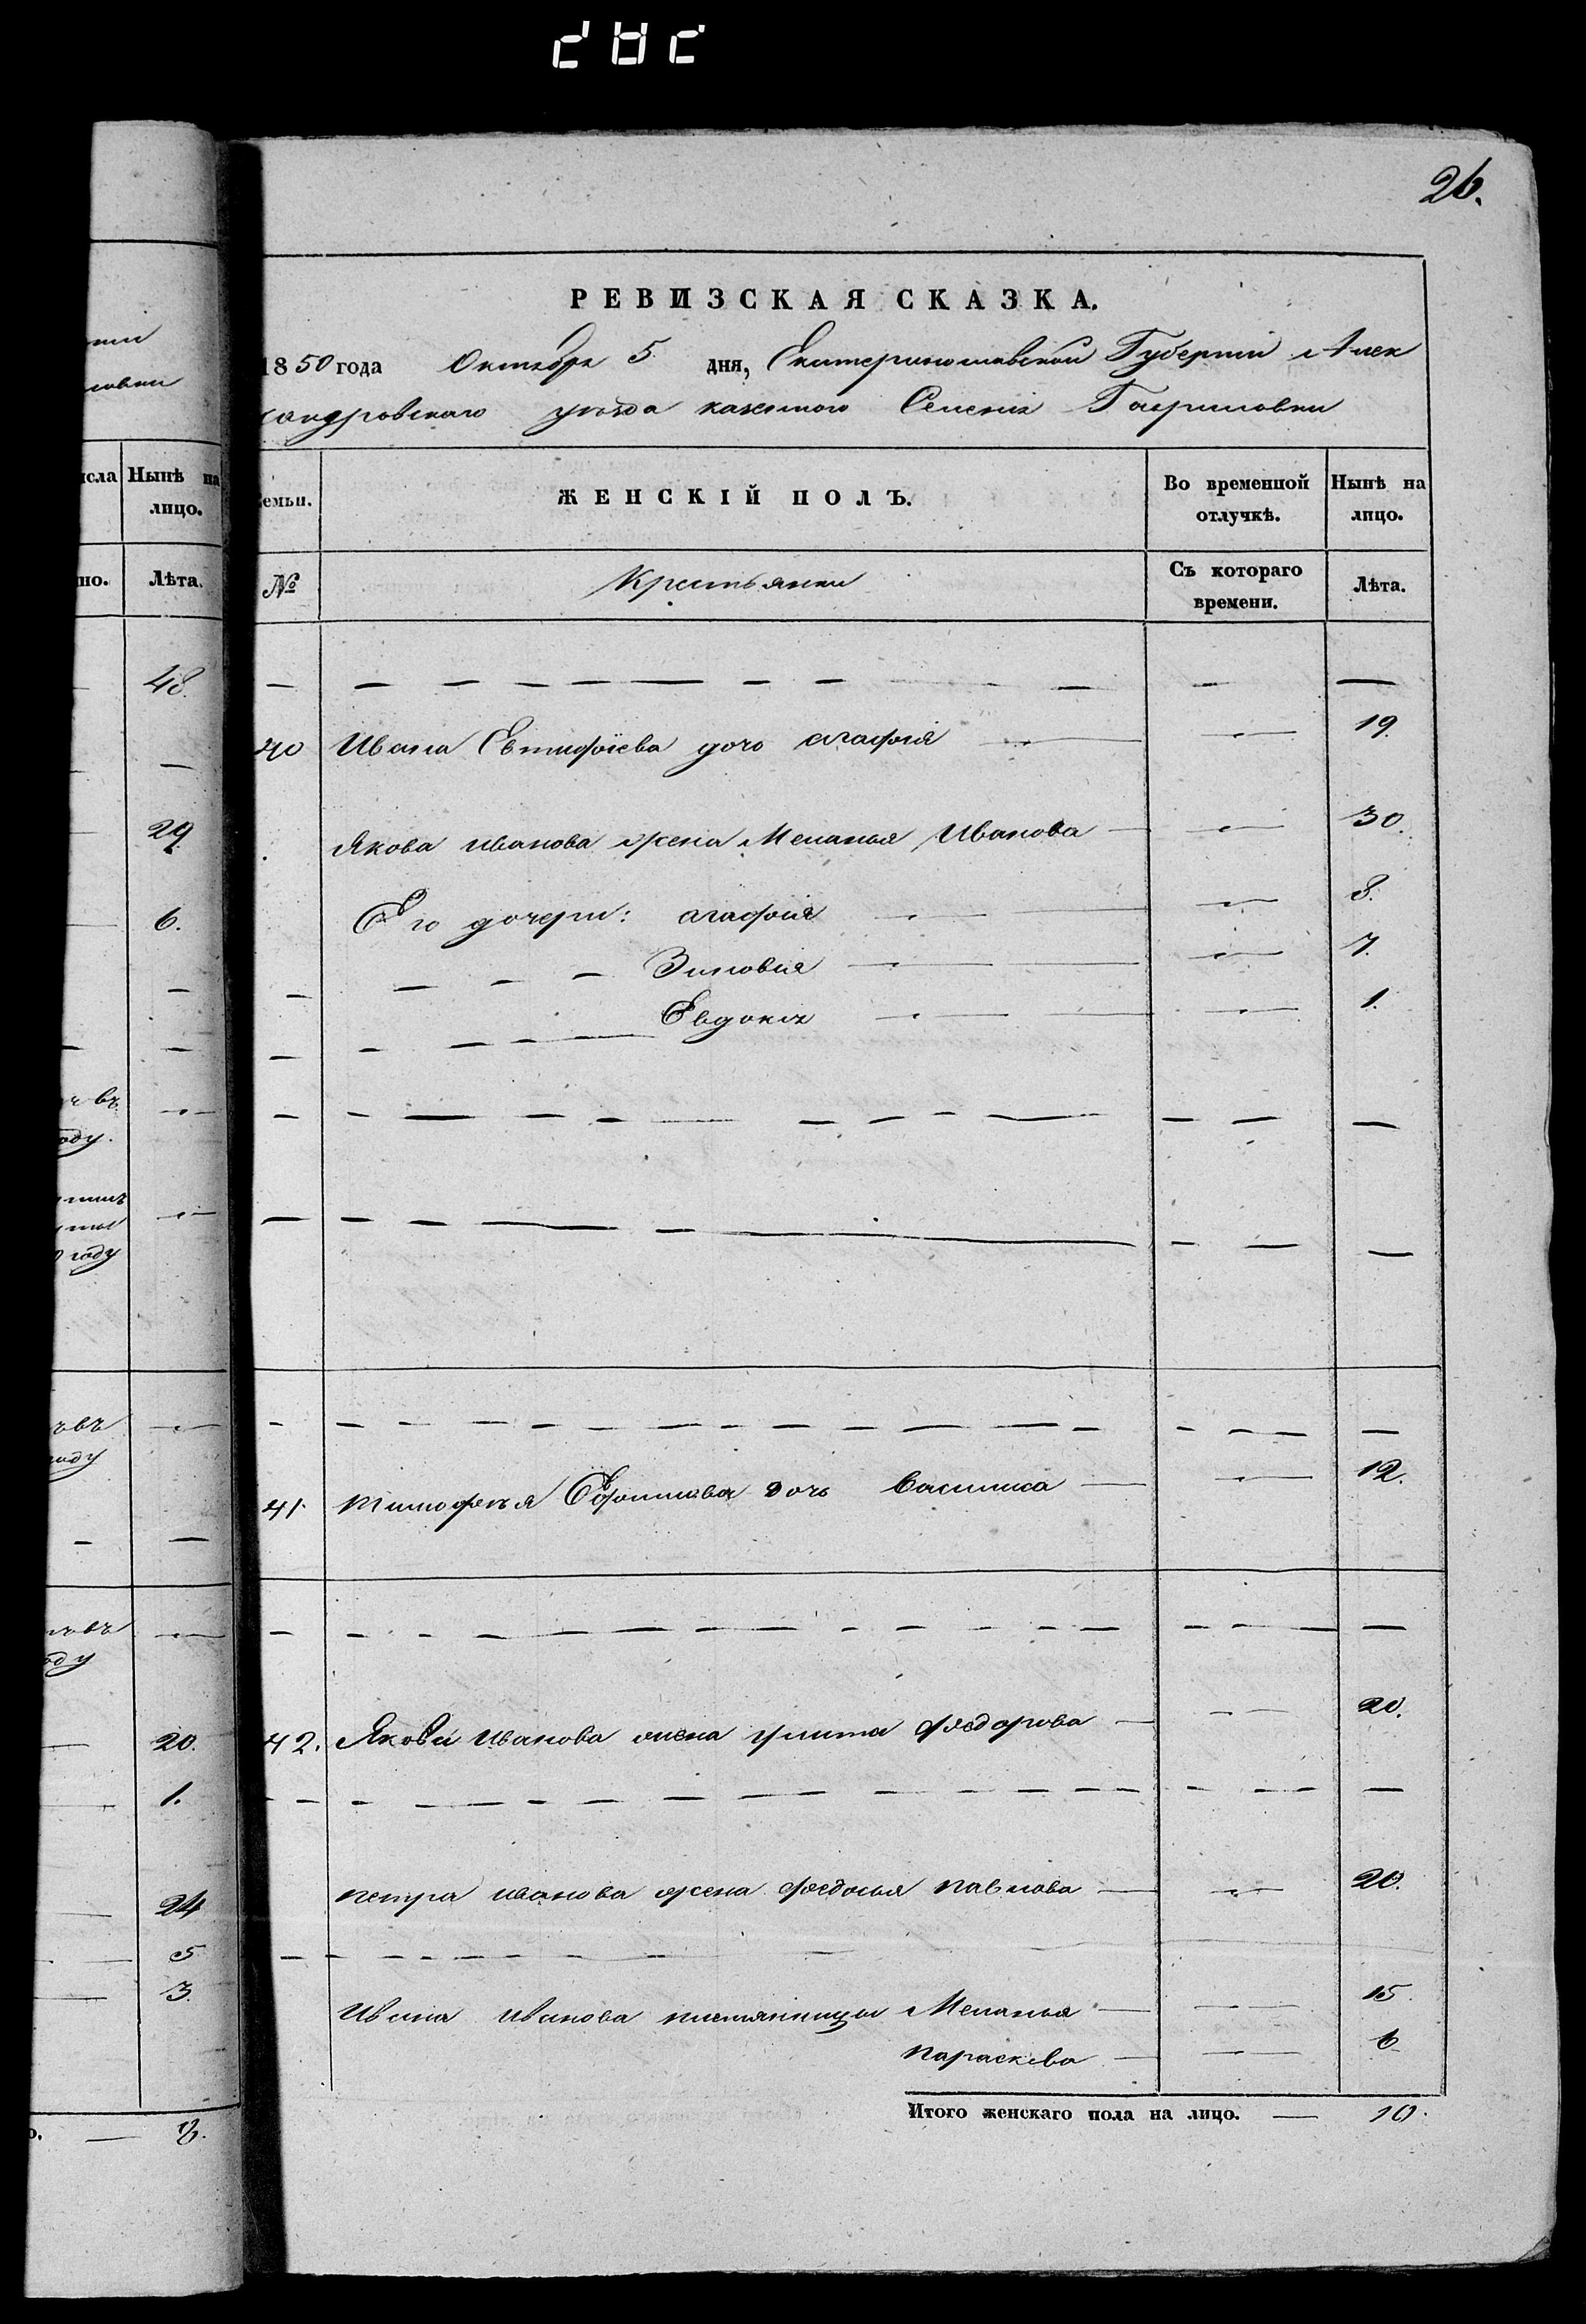 26.
РЕВИЗСКАЯ СКАЗКА.
1850 года Октября 5 дня, Екатеринославской Губернии Алек
сандровского уезда казенного Селения Гавриловки
исла Нынѣ на лицо.
Семьи. ЖЕНСКІЙ ПОЛЪ. Во временной отлучкѣ. Нынѣ на лицо.
но. Лѣта.
№ Крестьянки Съ котораго времени. Лѣта.
48.
40 Ивана Евтифіева дочь агафія 19.
29.
Якова иванова жена Меланья Иванова 30.
6.
Его дочери: агафія 8.
Зиновия 7.
Евдокия 1.
въ
оду.
году
въ
году
41. тимофея дочь Василиса 12.
въ
оду
20.
42. Якова Иванова жена улита федорова 20.
1.
24
петра иванова жена федосья павлова 20.
5
3.
Ивана Иванова племянницы Меланья 15.
параскева 6
Итого женскаго пола на лицо. — 10.